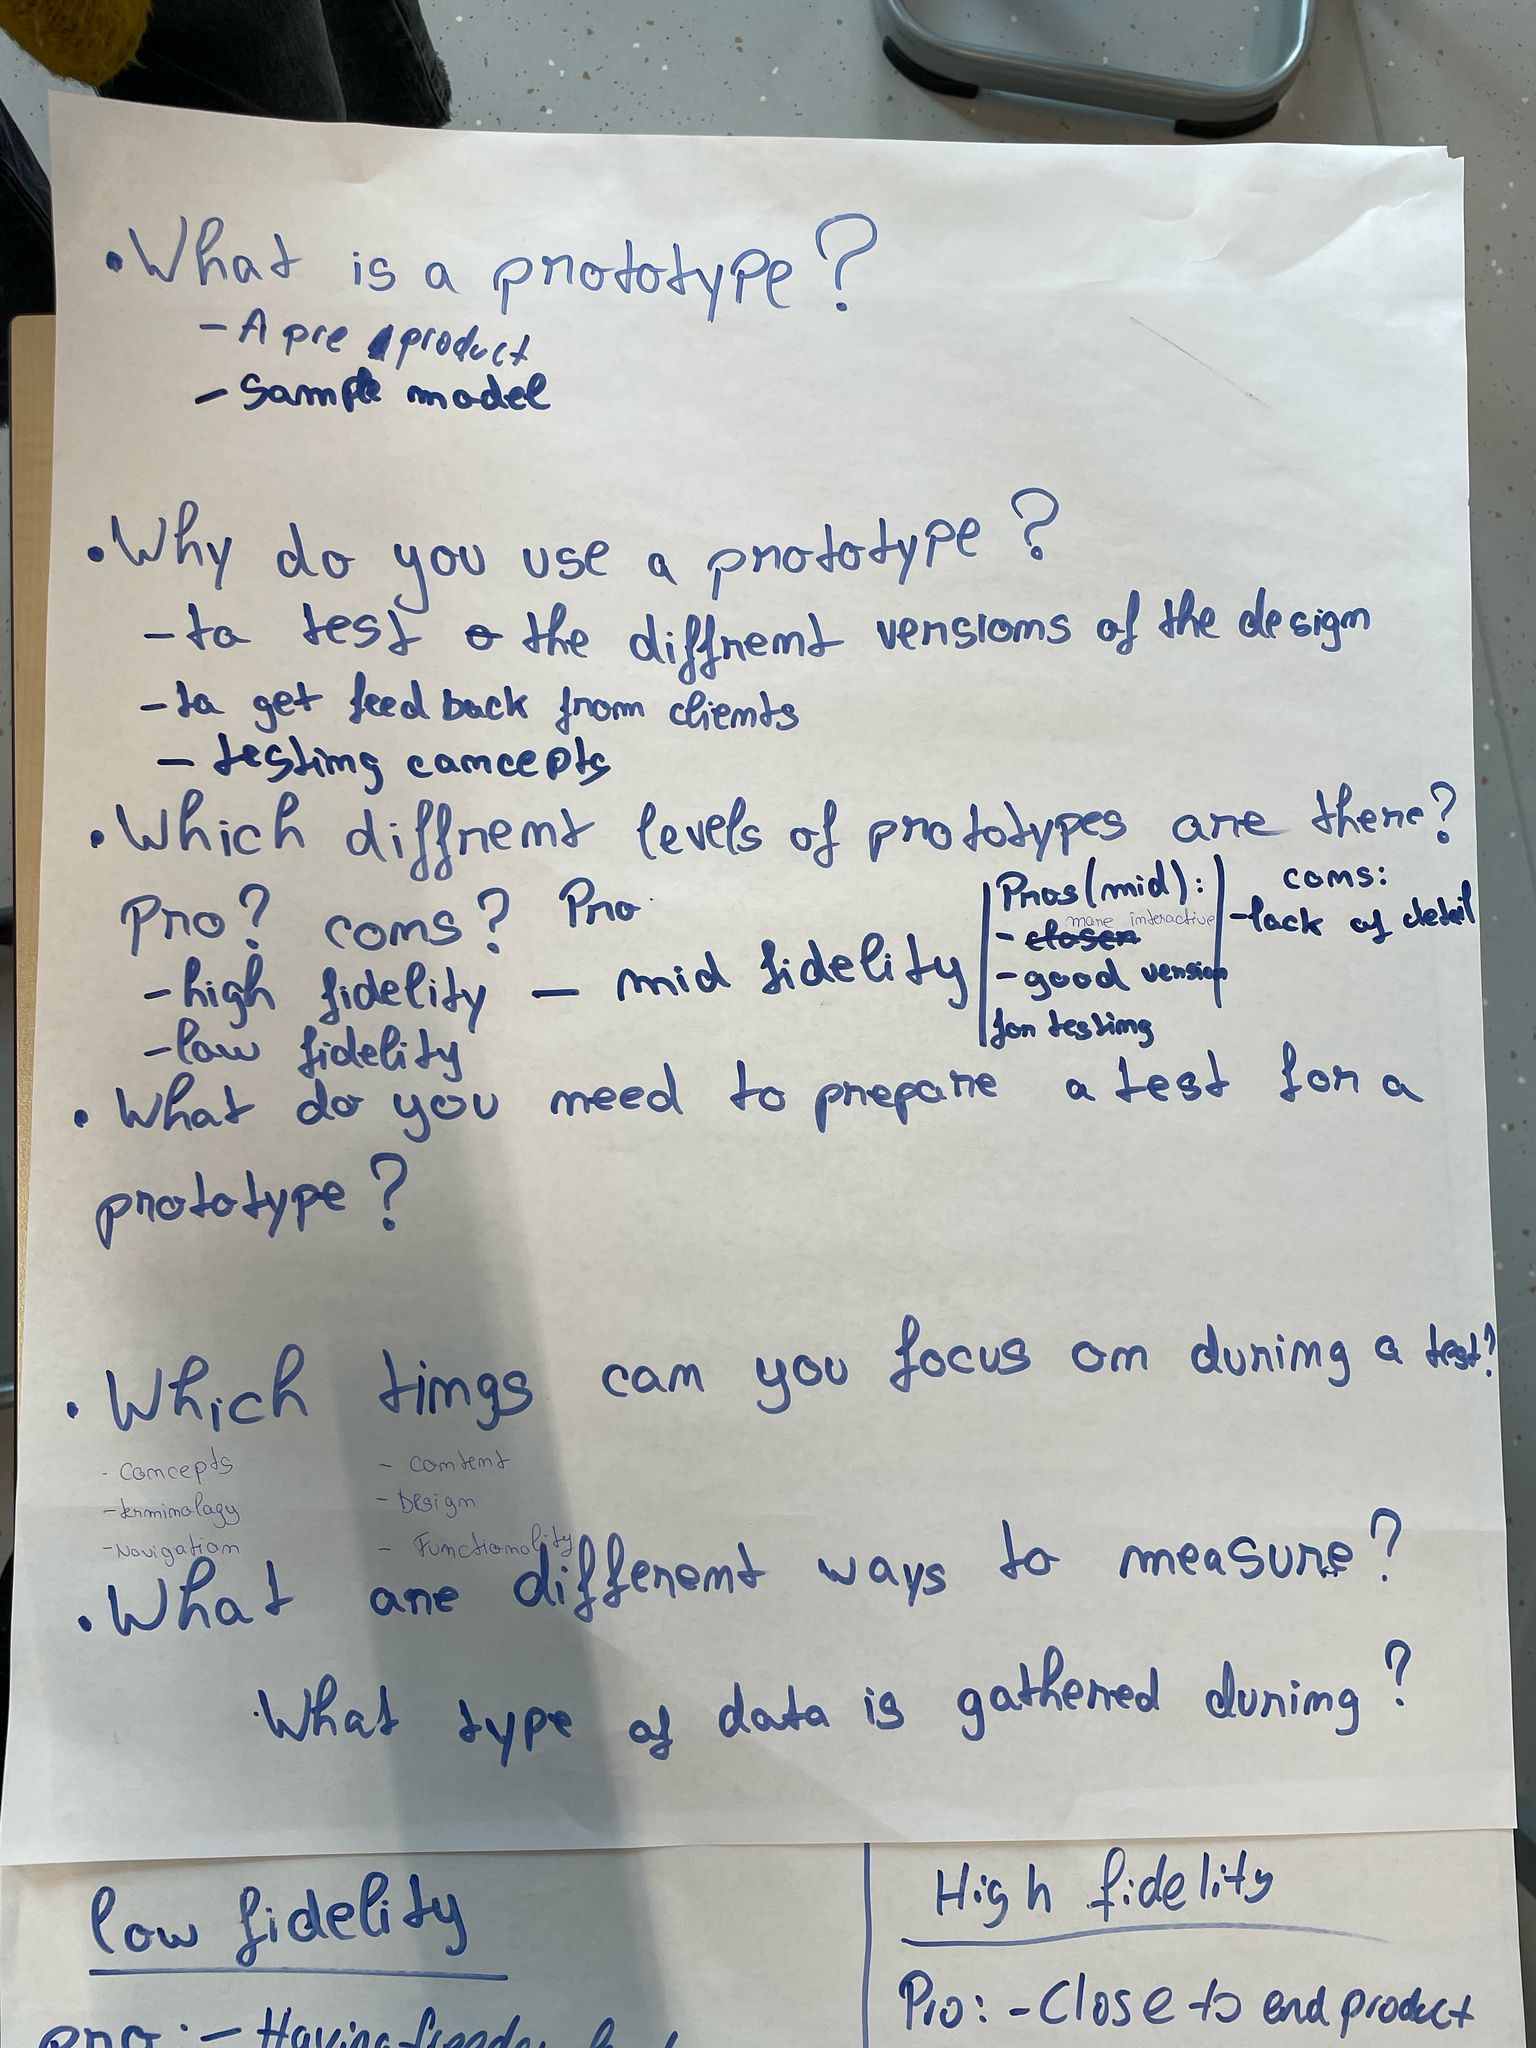 • What is a prototype?
- A pre product
- Sample model
• Why do you use a prototype?
- to test the diffrent versions of the design
- to get feedback from clients
- testing concepts
• Which diffrent levels of prototypes are there?
Pro? cons? Pro
- high fidelity - mid fidelity
- low fidelity
Pros (mid):
more interactive
- closer
- good version
for testing
cons:
- lack of detail
• What do you need to prepare a test for a
prototype?
• Which tings can you focus on during a test?
- Concepts
- terminology
- Navigation
- Content
- Design
- Functionality
• What are different ways to measure?
• What type of data is gathered during?
low fidelity
pro: - Having
High fidelity
Pro: - Close to end product